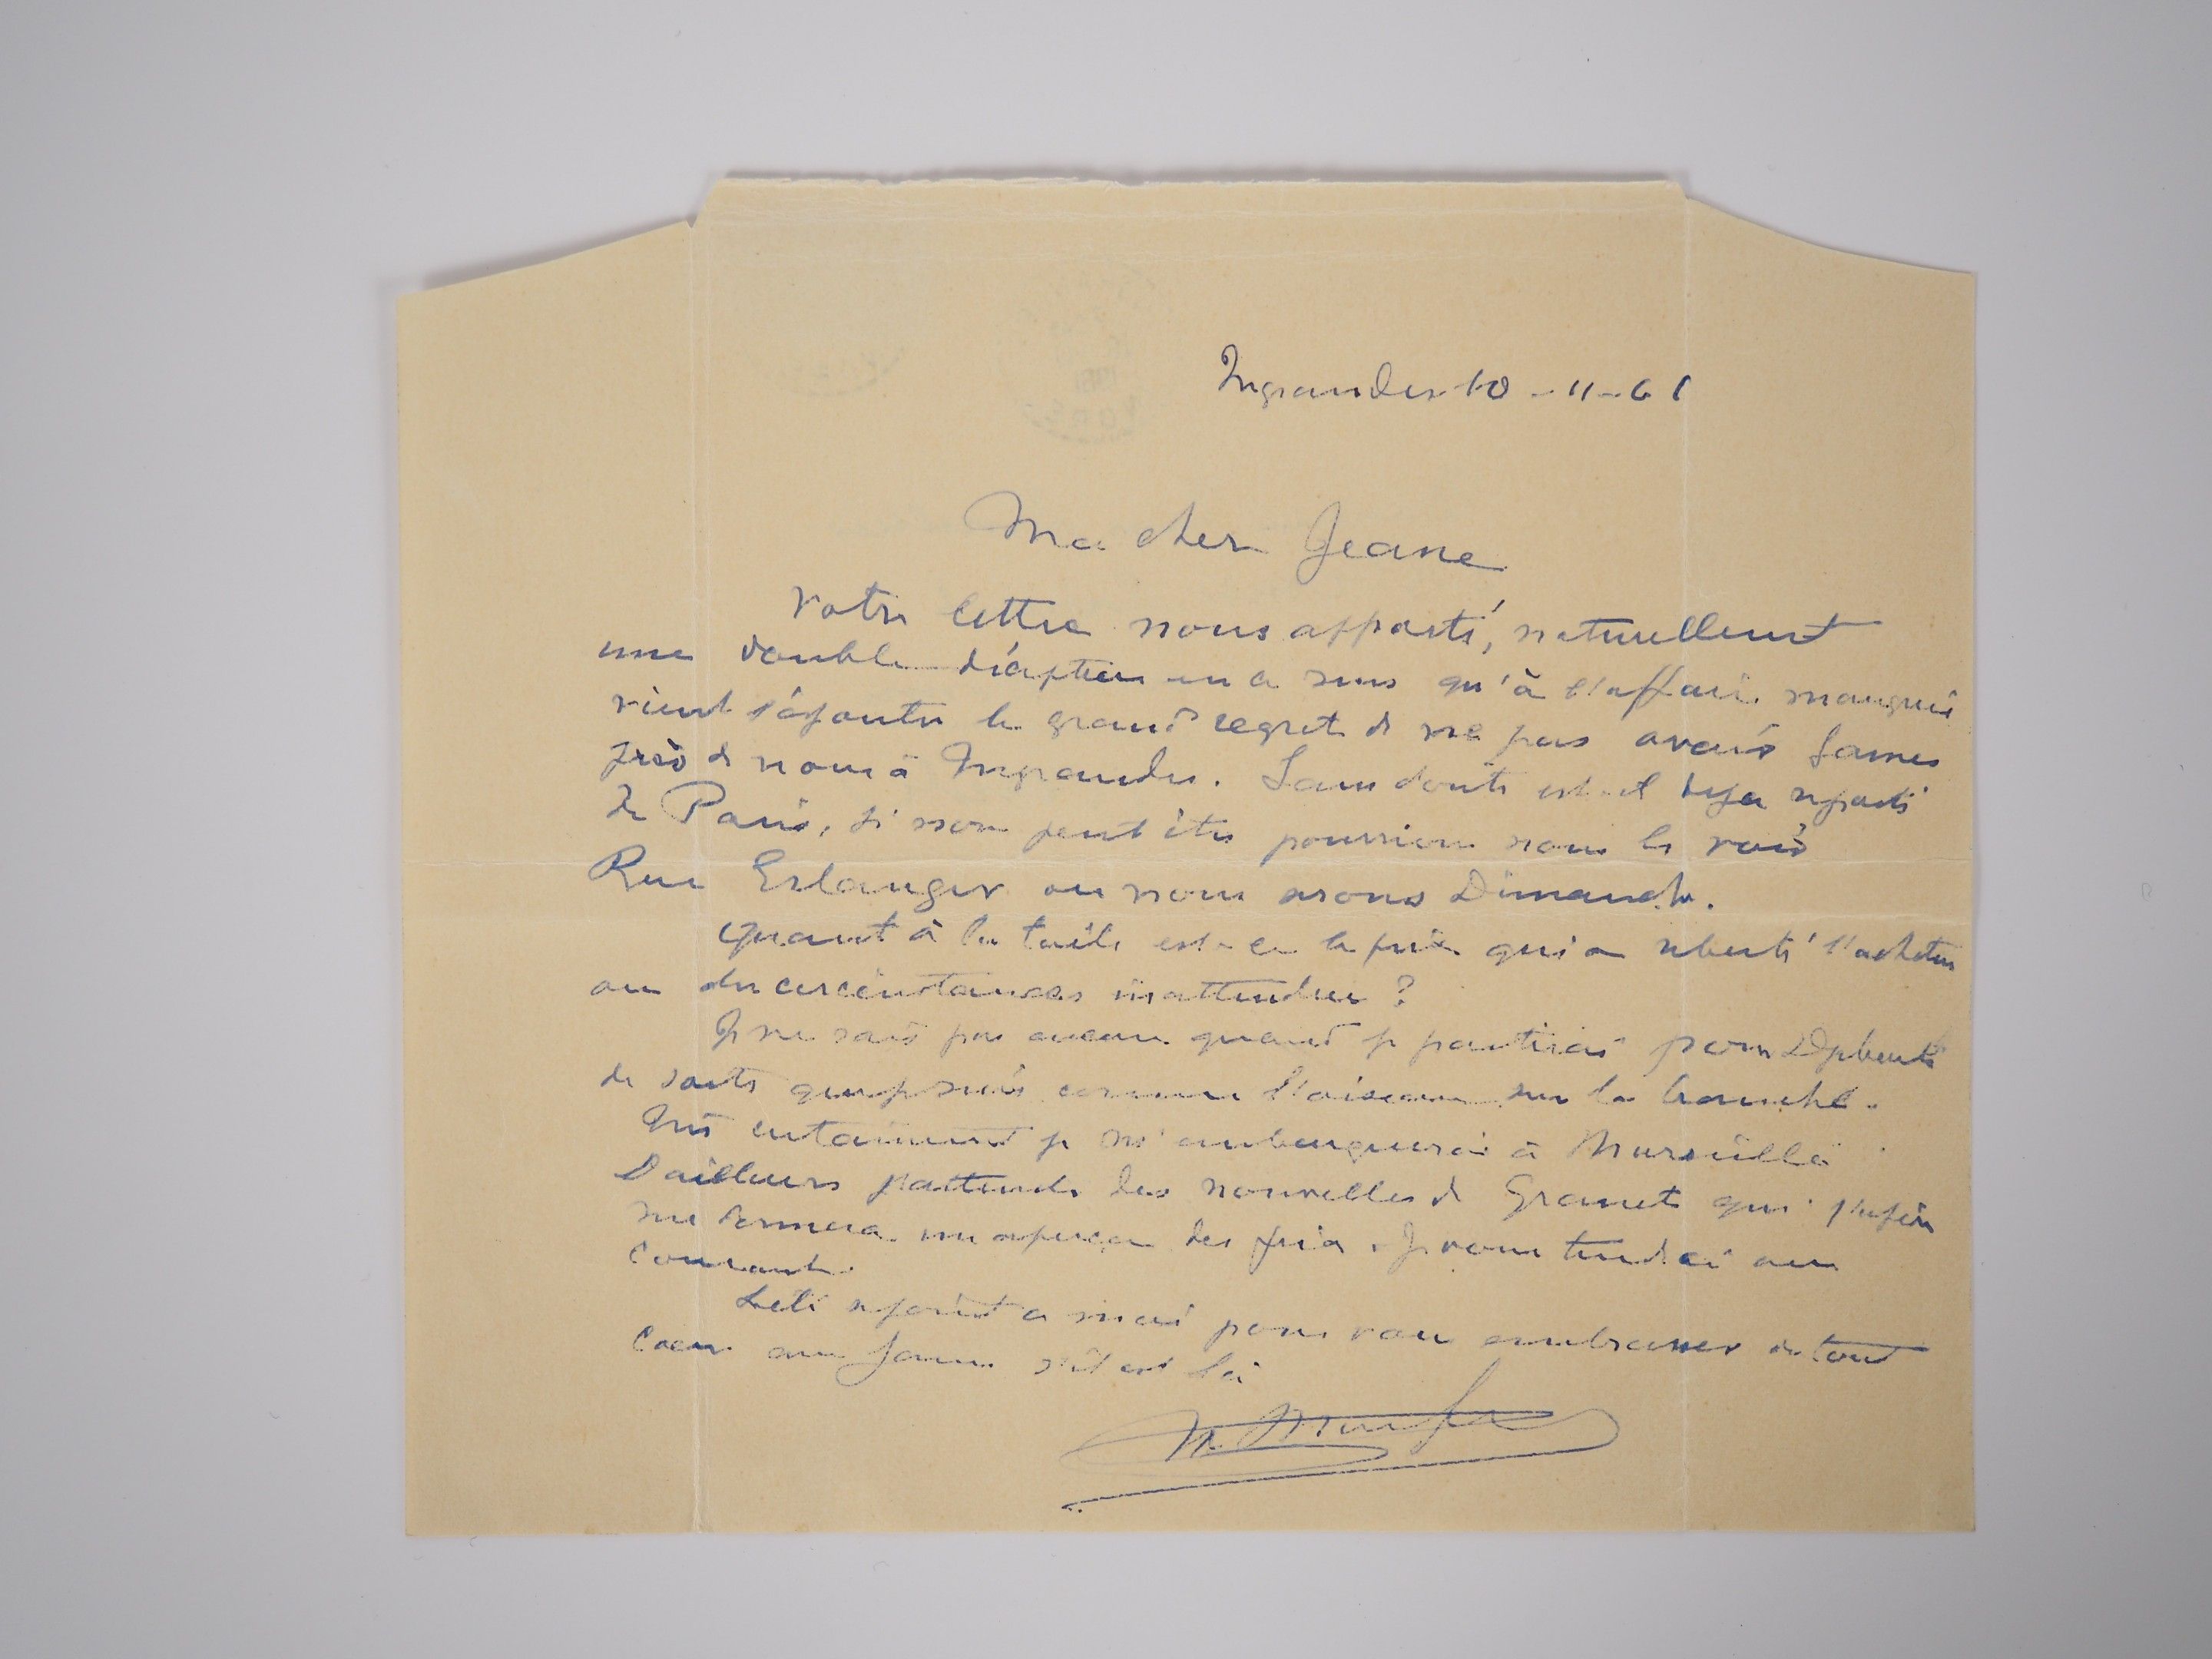 Ingrandes 10-11-61
Ma cher Jeane
Votre lettre nous apporte, naturellement
une double déception en ce sens qu'à l'affaire manquée
vient s'ajouter le grand regret de ne pas avoir James
près de nous à Ingrandes. Sans doute est-il déja reparti
de Paris, si non peut être pourrions nous le voir
Rue Erlanger ou nous serons Dimanche.
Quant à la toile est-ce le prix qui a rebuté l'acheteur
ou des circonstances inattendues ?
Je ne sais pas encore quand je partirai pour Djibouti
de sorte que je suis comme l'oiseau sur la branche.
Très certainement je m'embarquerai à Marseille
D'ailleurs j'attends des nouvelles de Granet qui j'espère
me donnera un aperçu des prix. Je vous tiendrai au
courant.
Leti se joint a moi pour vous embrasser de tout
coeur avec James s'il est là